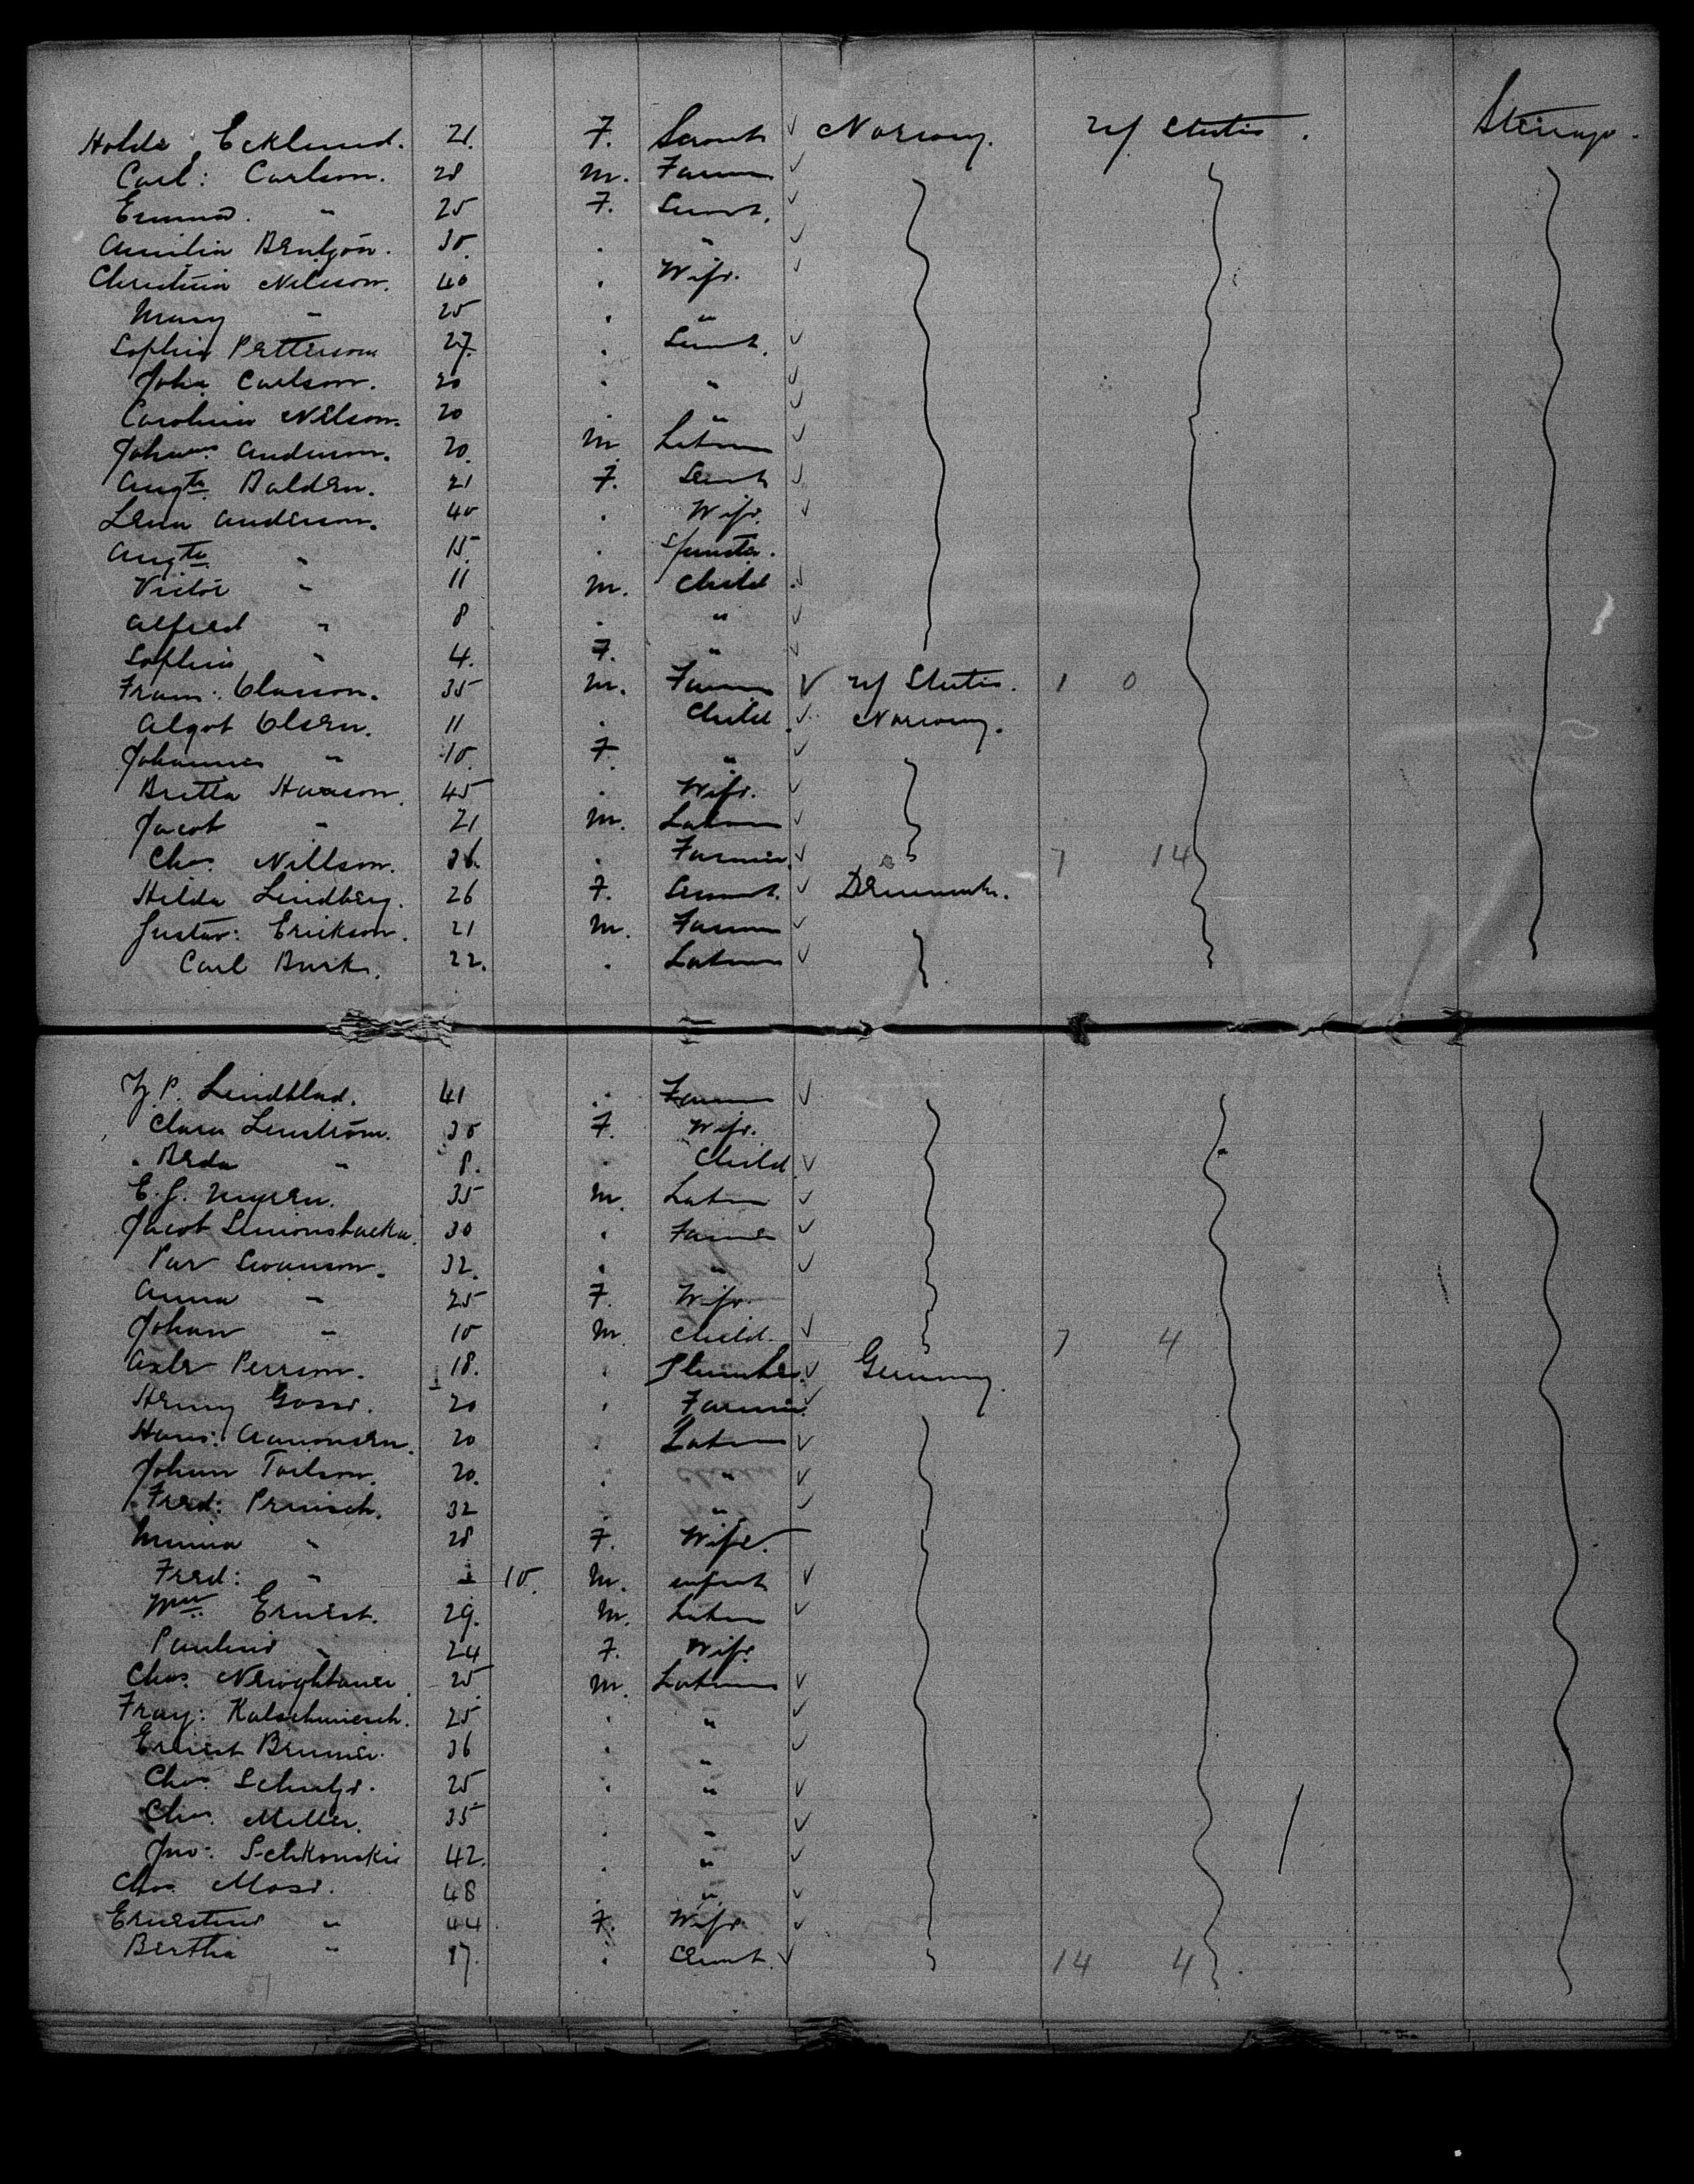 Holda Ecklund. 21. F. Servnt ✓ Norway. U/ States. Steerage.
Carl: Carlson. 28 M. Farmer ✓
Emma. " 25 F. Servnt. ✓
Amilia Bentzon. 30. . " ✓
Christina Nilsson. 40 . Wife. ✓
Mary " 25 . "
Sophia Petterson 27. . Servnt. ✓
Joha Carlson. 20 . " ✓
Carolina Nilson. 20 . " ✓
Johans Anderson. 20. M. Labourer ✓
Augta Dalden. 21 F. Servnt ✓
Lena Anderson. 40 . Wife. ✓
Augta " 15. . Spinster.
Victor " 11 M. Child ✓
Alfred " 8 . " ✓
Sophia " 4. F. " ✓
Frans: Classon. 35 M. Farmer ✓ U/ States. 1 0
Algot Olsen. 11 . Child ✓ Norway.
Johannes " 10. F. " ✓
Britta Hanson. 45 . Wife. ✓
Jacob " 21 M. Labourer ✓
Chas Nillson. 36. . Farmer ✓ 7 14
Hilda Lindberg. 26 F. Servnt. ✓ Denmark.
Gustav: Erikson. 21 M. Farmer ✓
Carl Burk. 22. . Labourer ✓
P. Lindblad. 41 " Farmer ✓
Clara Lenström. 30 F. Wife.
Beda " 8. . Child ✓
E. J. Nyren. 35 M. Labourer ✓
Jacob Simonsbacka. 30 . Farmer ✓
Par Swanson. 32. . " ✓
Anna " 25 F. Wife.
Johan " 10 M Child. ✓ 7 4
Axle Persson. 18. . Plumber ✓ Germany.
Henry Goss. 20 . Farmer ✓
Hans: Aamonsen. 20 . Labourer ✓
Johan Toilson. 20. . " ✓
Fred: Prinsch. 32 . " ✓
Minna " 28 F. Wife.
Fred: " 10. M. infant ✓
Wm. Ernest. 29. M. Labourer ✓
Paulina " 24 F. Wife.
Chas. 25 M. Labourer ✓
Franz: Kalschmiesch. 25 . " ✓
Ernest Brunner. 36 . " ✓
Chas. Schulze. 25 . " ✓
Chas. Miller. 35 . " ✓
Jno: Schkonskie 42. . " ✓
Chas. Mass. 48 . " ✓
Ernestine " 44. F. Wife. ✓
Bertha " 17. . Servnt. ✓ 14 4
51